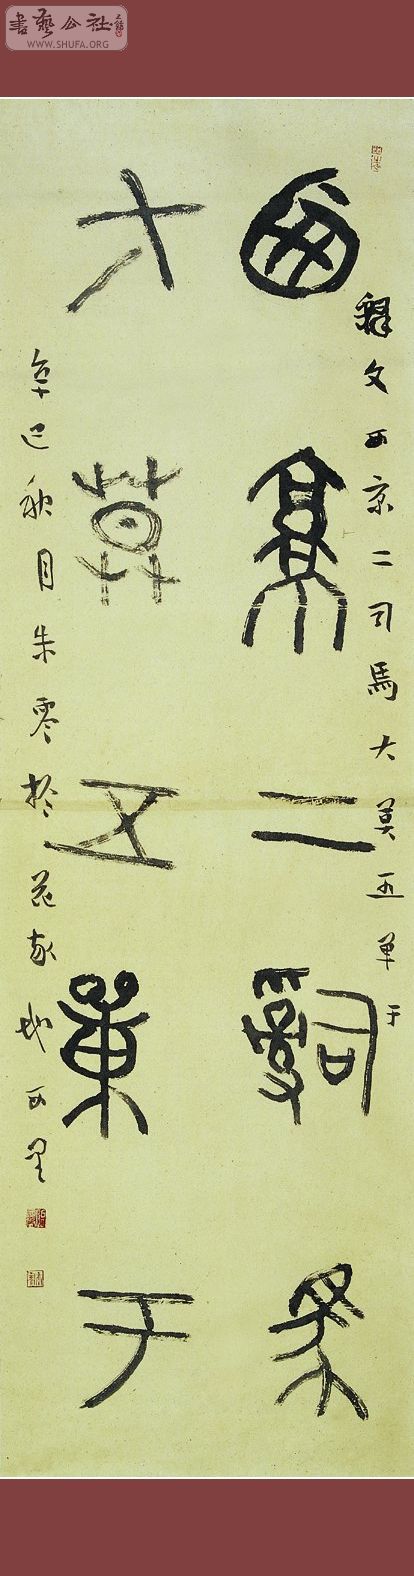 書藝公社
WWW.SHUFA.ORG
释文西京二司馬大莫五单于
西京二司馬
大莫五單于
辛巳秋月朱零於花家地西里